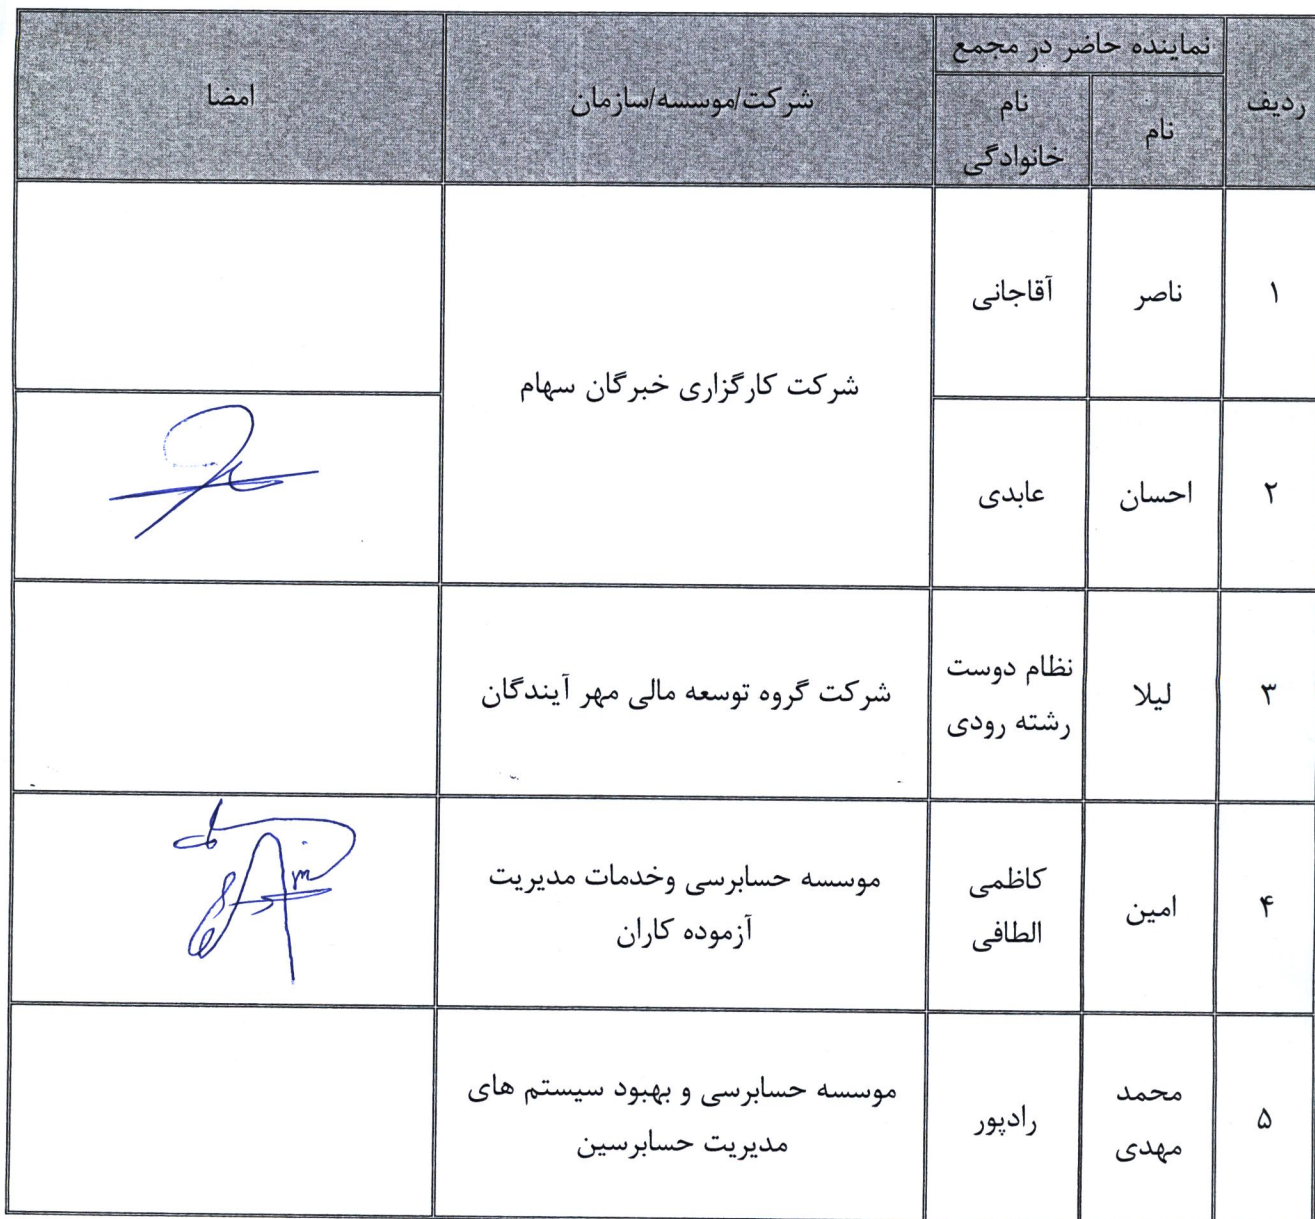 ردیف
نماینده حاضر در مجمع
نام
نام
خانوادگی
شرکت/موسسه/سازمان
امضا
۱
ناصر
آقاجانی
شرکت کارگزاری خبرگان سهام
۲
احسان
عابدی
۳
لیلا
نظام دوست
رشته رودی
شرکت گروه توسعه مالی مهر آیندگان
۴
امین
کاظمی
الطافی
موسسه حسابرسی وخدمات مدیریت
آزموده کاران
۵
محمد
مهدی
رادپور
موسسه حسابرسی و بهبود سیستم های
مدیریت حسابرسین